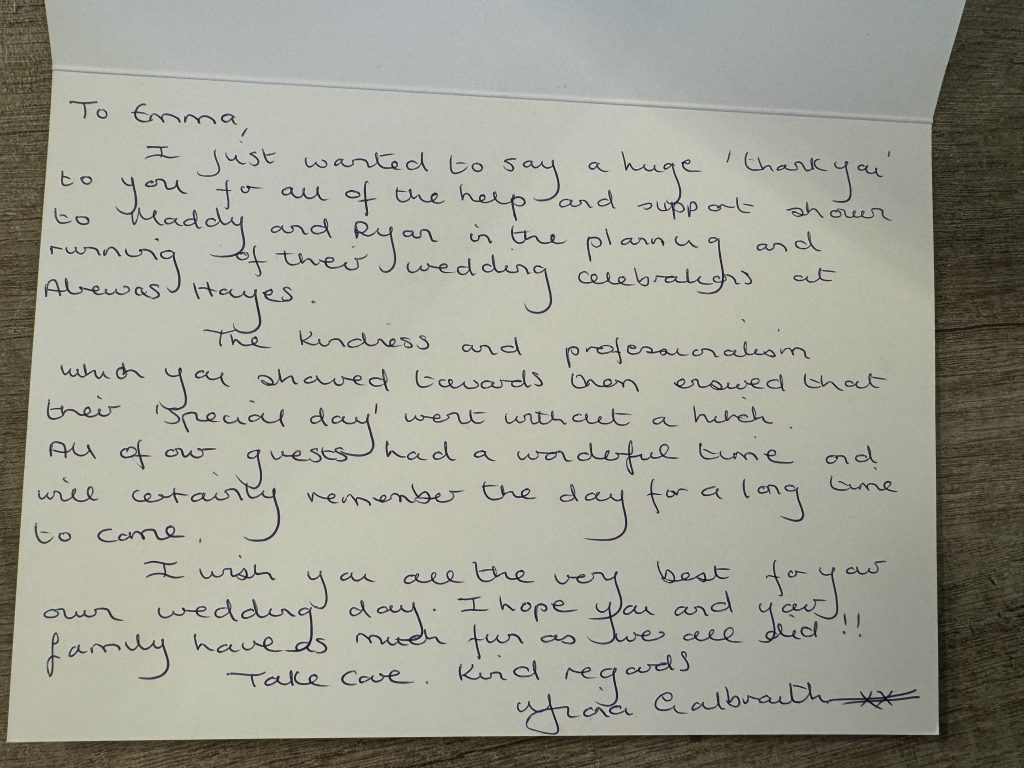 To Emma,
I just wanted to say a huge 'thank you'
to you for all of the help and support shown
to Maddy and Ryan in the planning and
running of their wedding celebrations at
Alrewas Hayes.
The kindness and professionalism
which you showed towards them ensured that
their 'special day' went without a hitch.
All of our guests had a wonderful time and
will certainly remember the day for a long time
to come.
I wish you all the very best for your
own wedding day. I hope you and your
family have as much fun as we all did!!
Take care. Kind regards
Galbraith xx